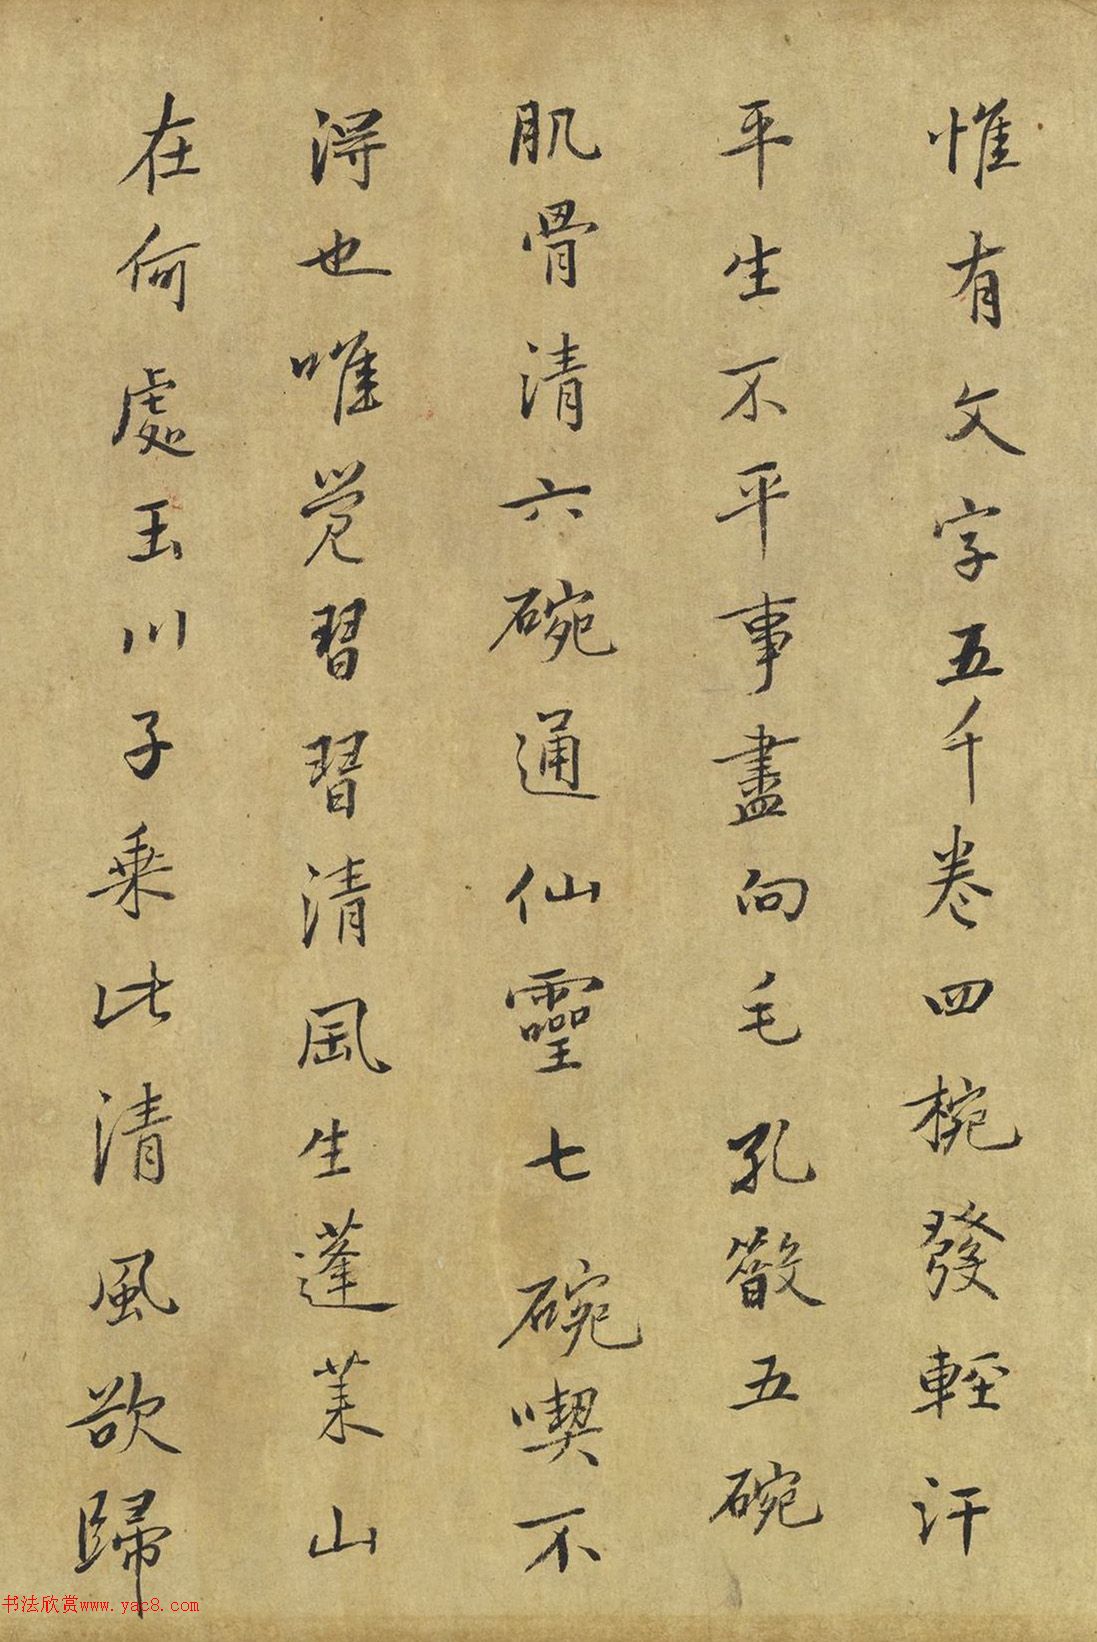 惟有文字五千卷四椀發輕汗
平生不平事盡向毛孔散五碗
肌骨清六碗通仙靈七碗喫不
得也唯覺習習清風生蓬萊山
在何處玉川子乘此清風欲歸
书法欣赏www.yac8.com